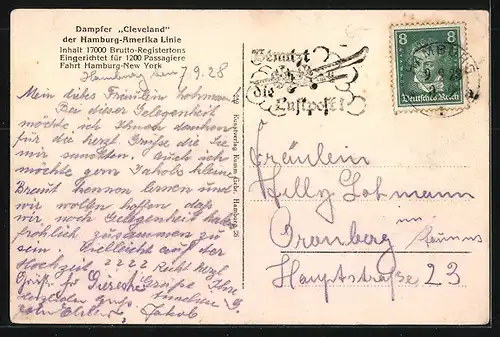 Dampfer „Cleveland"
der Hamburg-Amerika Linie
Inhalt 17000 Brutto-Registertons
Eingerichtet für 1200 Passagiere
Fahrt Hamburg-New York
Hamburg den 7 9. 28
Mein liebes Fräulein Lohmann
Bei dieser Gelegenheit
möchte ich Ihnen danken
für die herzl. Grüße die Sie
mir sandten. Auch ich
möchte gern Jakobs kleine
Braut kennen lernen und
wir wollen hoffen daß
wir noch Gelegenheit haben
fröhlich zusammen zu
sein. Vielleicht auf der
Hochzeit ???? Recht herzl.
Grüße Ihre
Herzlichen
Jakob
Kunstverlag Hamburg 26
Benutzt
die
Luftpost!
HAMBURG
8 8
Deutsches Reich
Fräulein
Willy Lohmann
in
Cronberg Taunus
Hauptstraße 23